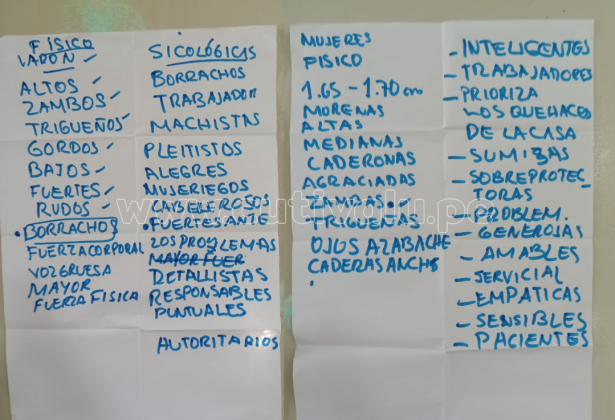 FÍSICO
VARÓN
ALTOS
ZAMBOS
TRIGUEÑOS
GORDOS
BAJOS
FUERTES
RUDOS
BORRACHOS
FUERZA CORPORAL
VOZ GRUESA
MAYOR
FUERZA FISICA
SICOLÓGICAS
BORRACHOS
TRABAJADOR
MACHISTAS
PLEITISTOS
ALEGRES
MUJERIEGOS
CABELEROSOS
FUERTES ANTE
LOS PROBLEMAS
MAYOR FUER
DETALLISTAS
RESPONSABLES
PUNTUALES
AUTORITARIOS
MUJERES
FISICO
1.65 - 1.70 cm
MORENAS
ALTAS
MEDIANAS
CADERONAS
AGRACIADAS
ZAMBAS
TRIGUEÑAS
OJOS AZABACHE
CADERAS ANCHS
- INTELIGENTES
- TRABAJADORES
- PRIORIZA
LOS QUEHACE
DE LA CASA
- SUMIZAS
- SOBREPROTEC-
TORAS
- PROBLEM.
- GENEROSAS
- AMABLES
- SERVICIAL
- EMPATICAS
- SENSIBLES
- PACIENTES